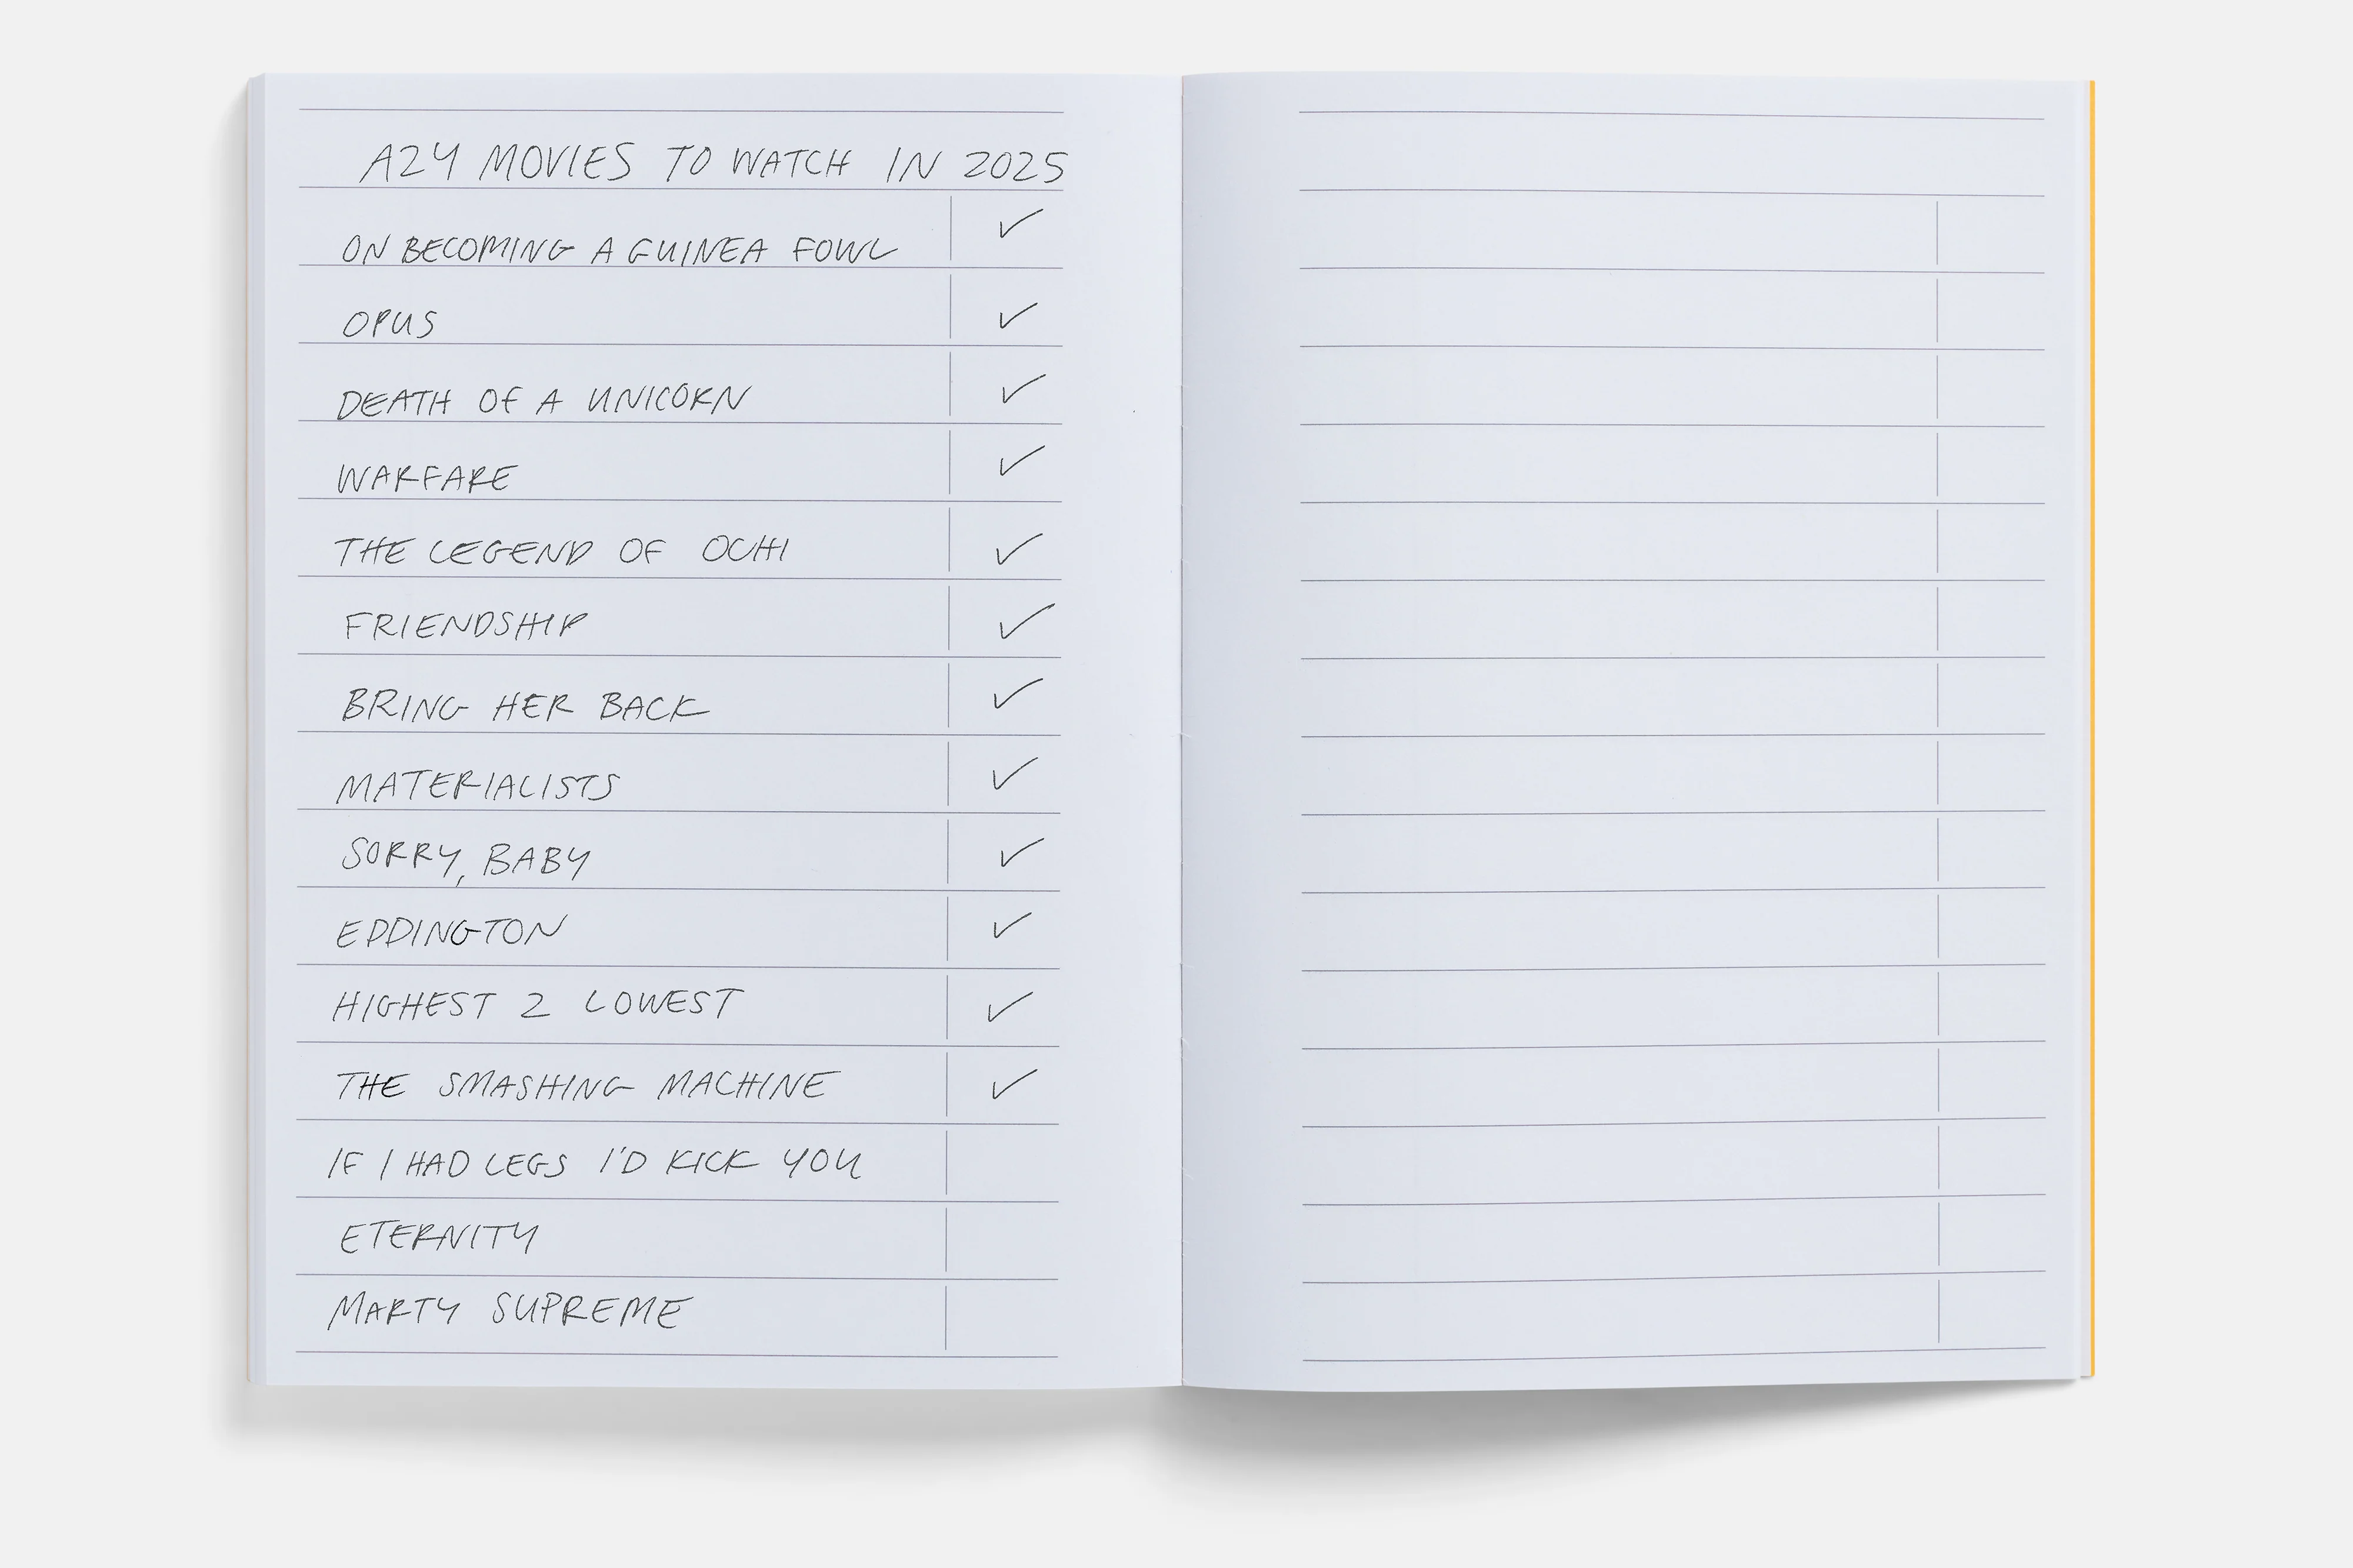 A24 MOVIES TO WATCH IN 2025
ON BECOMING A GUINEA FOWL ✓
OPUS ✓
DEATH OF A UNICORN ✓
WARFARE ✓
THE LEGEND OF OCHI ✓
FRIENDSHIP ✓
BRING HER BACK ✓
MATERIALISTS ✓
SORRY, BABY ✓
EDDINGTON ✓
HIGHEST 2 LOWEST ✓
THE SMASHING MACHINE ✓
IF I HAD LEGS I'D KICK YOU
ETERNITY
MARTY SUPREME